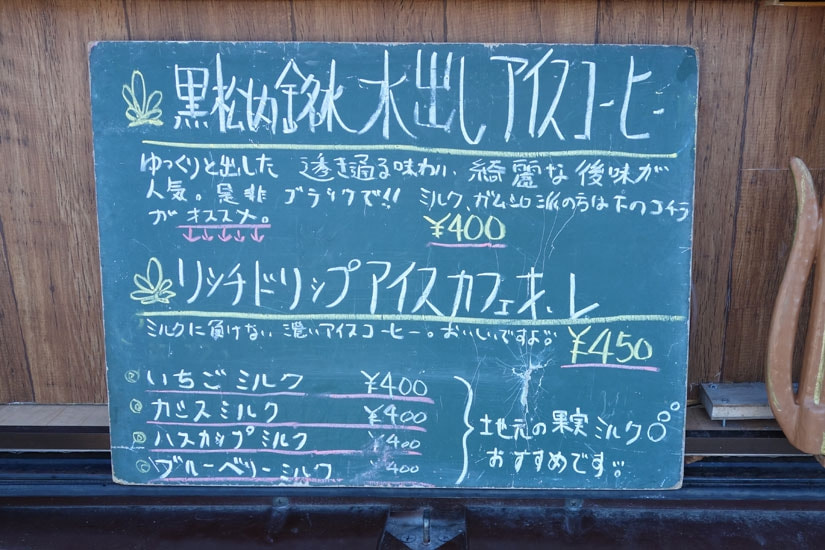 黒松内銘水 水出しアイスコーヒー
ゆっくりと出した 透き通る味わい 綺麗な後味が
人気。是非 ブラックで!! ミルク、ガムシロ派の方は下のコチラ
が オススメ。
↓↓↓↓↓
¥400
リッチドリップアイスカフェオ・レ
ミルクに負けない 濃いアイスコーヒー。おいしいですよ。
¥450
いちごミルク ¥400
カシスミルク ¥400
ハスカップミルク ¥400
ブルーベリーミルク 400
地元の果実ミルク
おすすめです。